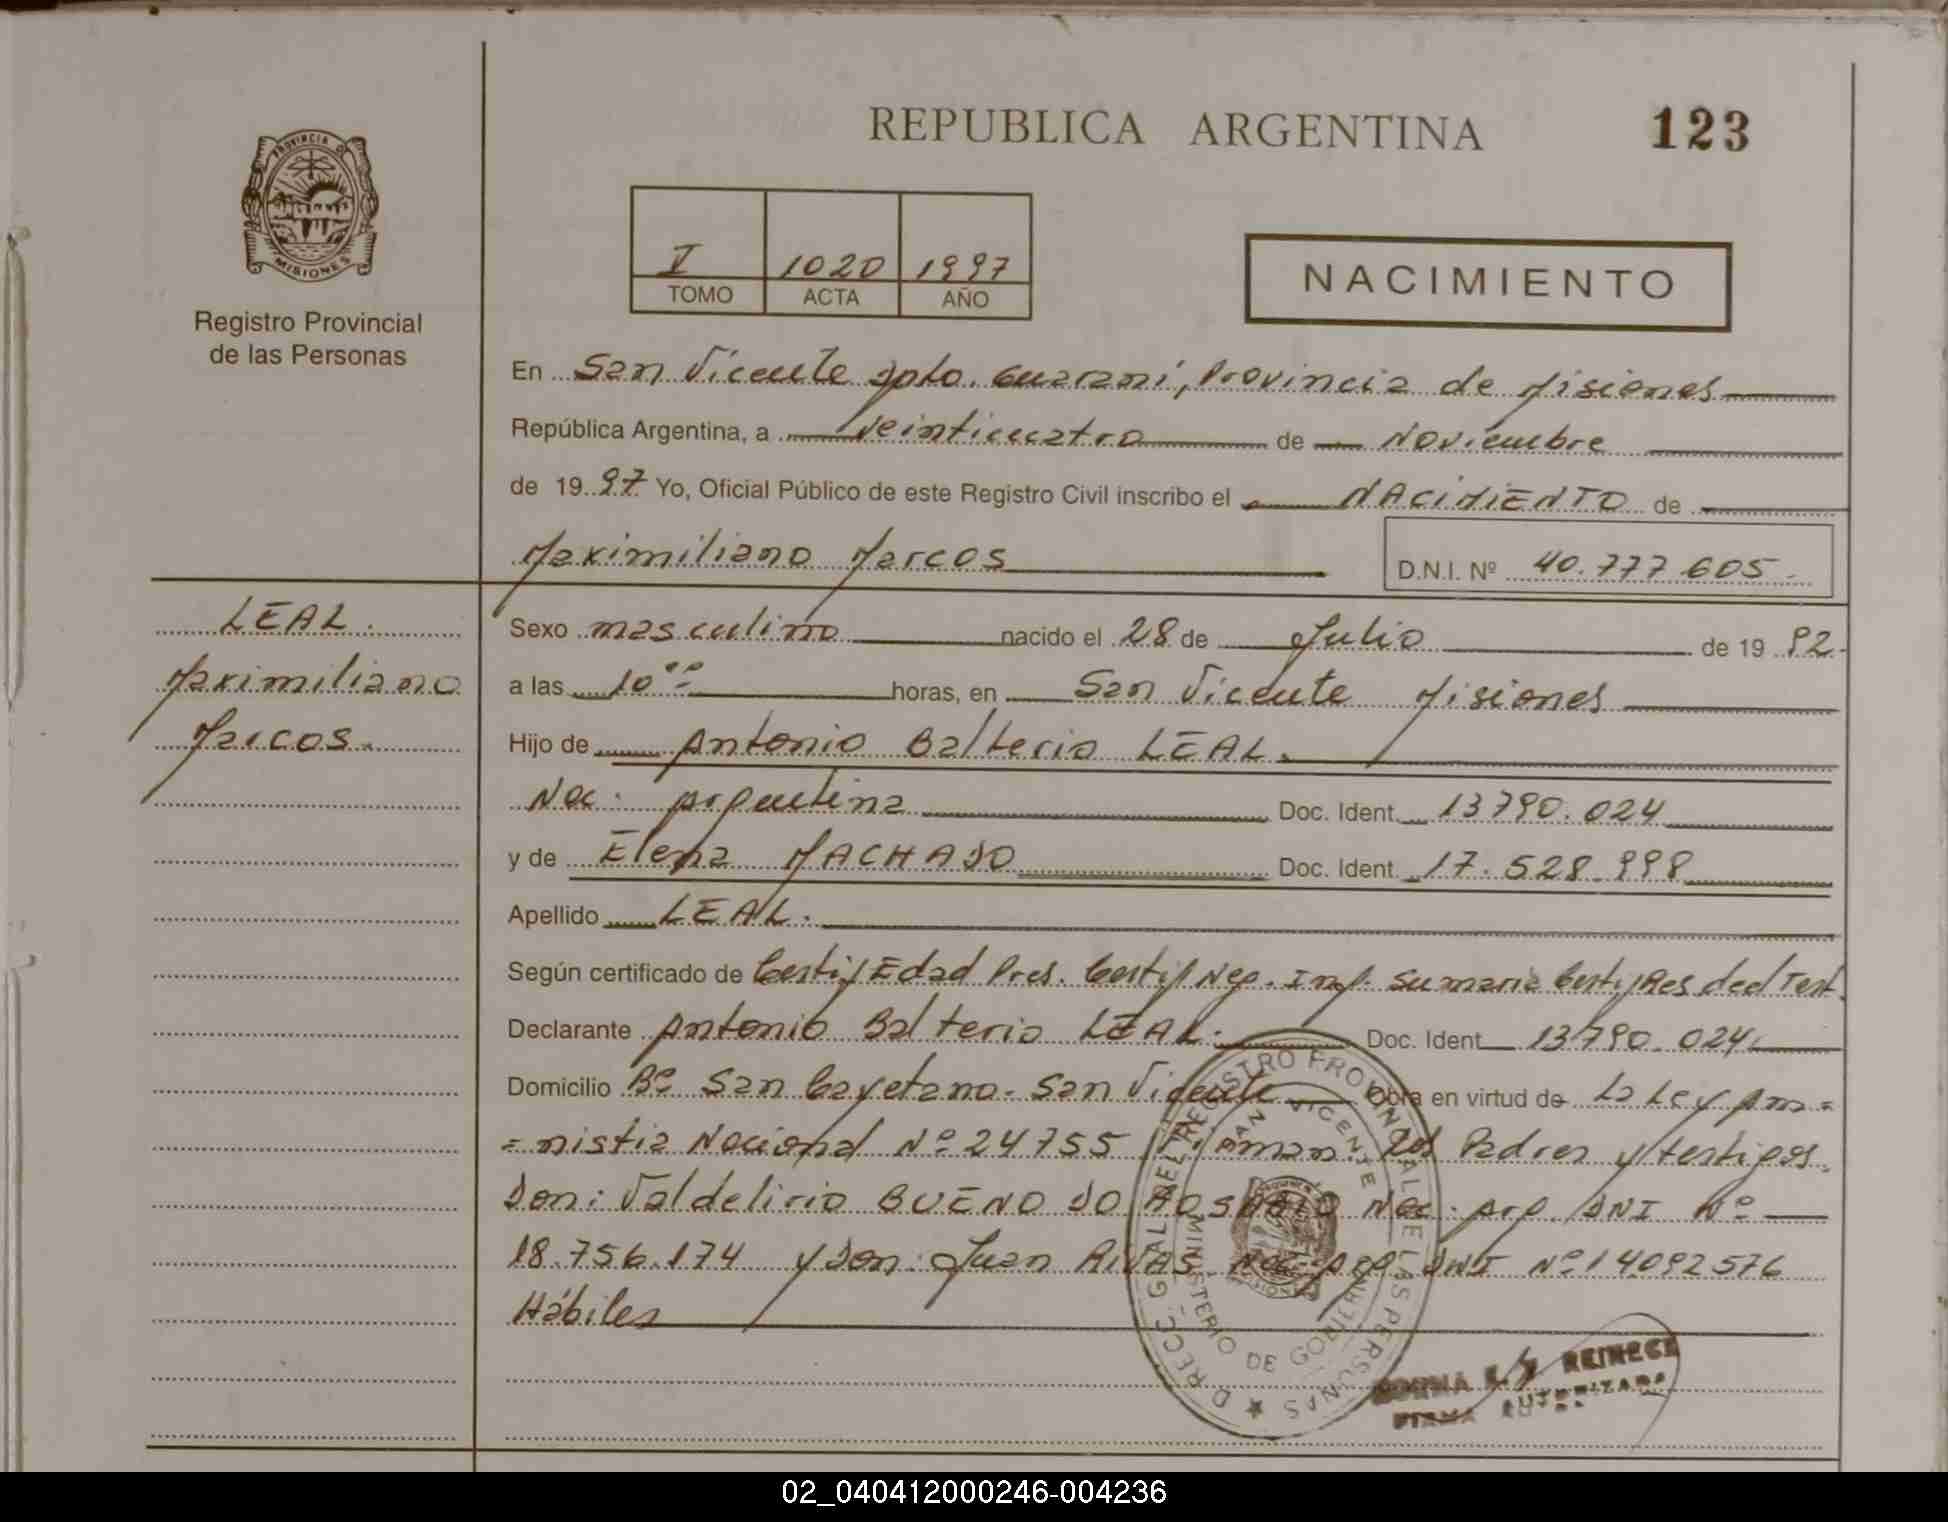 REPUBLICA ARGENTINA
123
PROVINCIA DE
MISIONES
Registro Provincial
de las Personas
V 1020 1997
TOMO ACTA AÑO
NACIMIENTO
En San Vicente Dpto. Guaraní, Provincia de Misiones
República Argentina, a Veinticuatro de Noviembre
de 1997 Yo, Oficial Público de este Registro Civil inscribo el NACIMIENTO de
Maximiliano Marcos
D.N.I. Nº 40.777.605
LEAL.
Maximiliano
Marcos.
Sexo masculino nacido el 28 de Julio de 1992
a las 10ºº horas, en San Vicente Misiones
Hijo de Antonio Balterio LEAL.
Nac. Argentina Doc. Ident. 13790.024
y de Elena MACHADO Doc. Ident. 17.528.998
Apellido LEAL.
Según certificado de Certif Edad Pres. Certif Neg. Inf. Sumaria Certif Res ded Test.
Declarante Antonio Balterio LEAL. Doc. Ident 13790.024
Domicilio Bº San Cayetano. San Vicente Obra en virtud de La Ley Am=
=nistia Nacional Nº 24755 Padres y testigos.
Don: Valdelirio BUENO DO Nac. Arg. DNI Nº
18.756.174 y Don: Juan RIVAS Nac. Arg DNI Nº 14092576
Hábiles
D RECC GRAL DEL REGISTRO PROVINCIAL DE LAS PERSONAS
SAN VICENTE
MINISTERIO DE GOBIERNO
NORMA REINECK
FIRMA AUTORIZADA
02_040412000246-004236